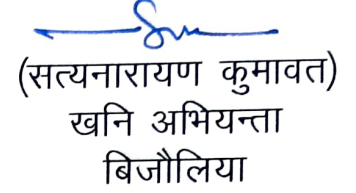 (सत्यनारायण कुमावत)
खनि अभियन्ता
बिजौलिया